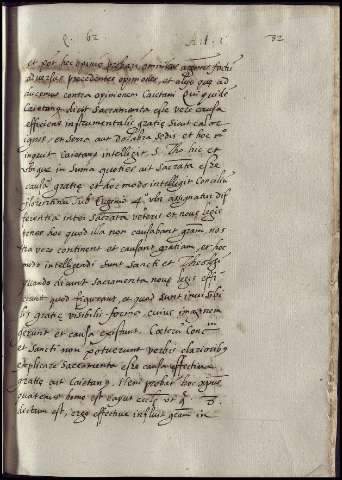 q. 62 Art. 1 32
et pot hoc opinio probari omnibus
adversus precedentes opiniones, et aliqua que ad
ducemus contra opinionem Caietani quid
Caietanus dicit Sacramenta esse vere causa
efficiens instrumentalis gratie sicut calor
ignis, et serra aut dolabra sedis et hoc mo
inquit Caietanus intelligit S. Tho hic et
ubique in suma quoties ait sacrata esse
causam gratie et hoc modo intelligit Concilium
florentinum sub Eugenio 4o ubi assignatur dif
ferentia inter sacrata veteris et nove legis
tenes hoc quod illa non causabant gram, nos
tra vero continent et causant gratiam, et hoc
modo intelligendi sunt sancti et Theologi
quando dicunt sacramenta nove legis effi
ciunt quod figurant, et quod sunt invisibi
lis gratie visibilis forme, cuius imaginem
gerunt et causa existunt. Ceterum Concm
et sancti non potuerunt verbis clarioribus
explicare Sacramenta esse causa effectivam
gratie ait Caietanus. Item probat hoc
quatenus homo est caput ecclie ut q 8.
dictum est, ergo effective influit gram in